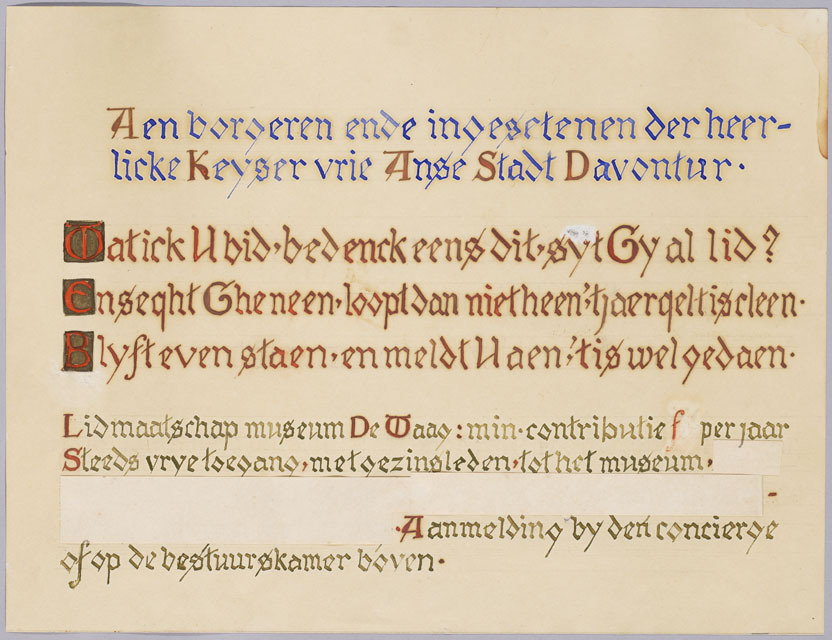 Aen borgeren ende ingesetenen der heer-
licke Keyser vrie Anse Stadt Davontur.
Watick U bid, bedenck eens dit, syt Gy al lid?
Enseght Gheneen, loopt dan niet heen, 'tjaergelt is cleen.
Blyft even staen, en meldt U aen, 'tis wel gedaen.
Lidmaatschap museum De Waag: min. contributie f per jaar
Steeds vrye toegang, met gezinsleden, tot het museum,
.Aanmelding by den concierge
of op de bestuurskamer boven.